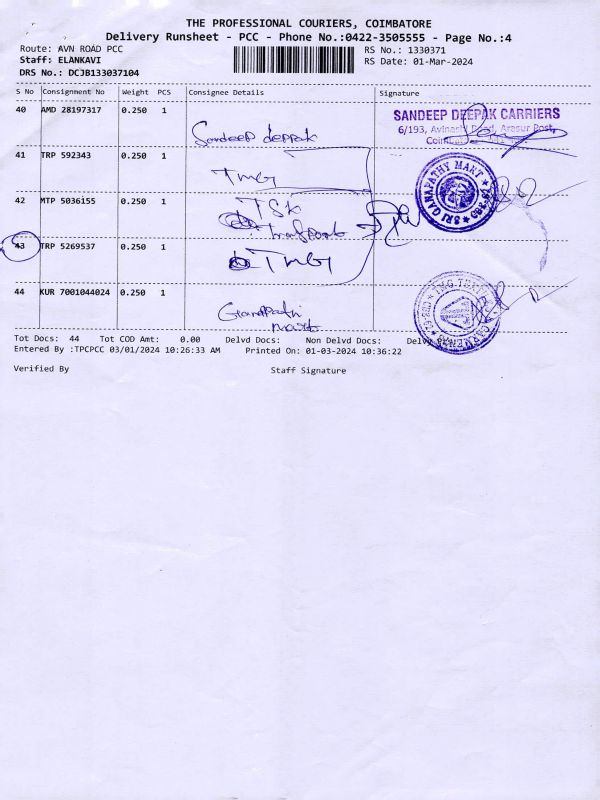 THE PROFESSIONAL COURIERS, COIMBATORE
Delivery Runsheet - PCC - Phone No.:0422-3505555 - Page No.:4
Route: AVN ROAD PCC
RS No.: 1330371
Staff: ELANKAVI
RS Date: 01-Mar-2024
DRS No.: DCJB133037104
S No Consignment No Weight PCS Consignee Details Signature
40 AMD 28197317 0.250 1
SANDEEP DEEPAK CARRIERS
6/193, Avinashi Road, Arasur Post,
Sandeep deepak
41 TRP 592343 0.250 1
TMG
SRI GANAPATHY MART
42 MTP 5036155 0.250 1
TSK
transport
43 TRP 5269537 0.250 1
TMG
44 KUR 7001044024 0.250 1
Tot Docs: 44 Tot COD Amt: 0.00 Delvd Docs: Non Delvd Docs:
Entered By :TPCPCC 03/01/2024 10:26:33 AM Printed On: 01-03-2024 10:36:22
Verified By Staff Signature